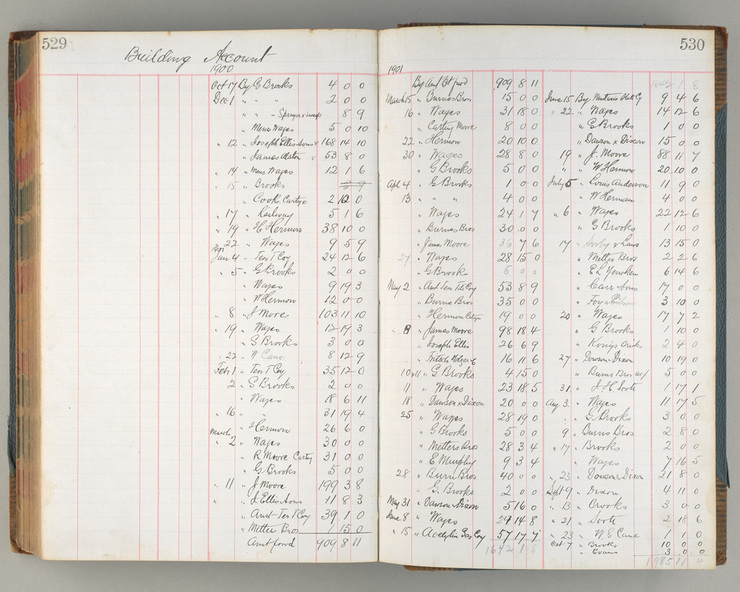 529
Building Account
1900
Oct 17 By G Brooks 4 0 0
Dec 1 " " " 2 0 0
" " 8 9
" Mens Wages 5 0 10
" 12 " Joseph Ellis & Sons 168 14 10
" James 53 8 0
" 14 " Mens Wages 12 1 6
" 15 " Brooks
" Cook Cartge 2 12 0
" 17 " Railway 5 1 6
" 19 " H Hermon 38 10 0
" 22 " Wages 9 5 9
Jan 4 " Ten T Coy 24 12 6
" 5 " G Brooks 2 0 0
" Wages 9 19 3
" W Hermon 12 0 0
" 8 " J Moore 103 11 10
" 19 " Wages 12 19 3
" G Brooks 3 0 0
" 22 " W Cane 8 12 9
Feb 1 " Ten T Coy 35 12 0
2 " G Brooks 2 0 0
" Wages 18 6 11
" 16 " 31 19 4
March " Hermon 26 6 0
" 2 " Wages 30 0 0
" R Moore Cartg 31 0 0
" G Brooks 5 0 0
" 11 " J Moore 199 3 8
" J Ellis & Sons 11 8 3
" Amt Ten T Coy 39 1 0
" Metters Bros 1 15 0
Amt forwd 909 8 11
530
1901
By Amt Bt forwd 909 8 11
March 15 " Burns Bros 15 0 0
16 " Wages 31 18 0
" Moore 8 0 0
22 " Hermon 20 10 0
30 " Wages 28 8 0
" G Brooks 5 0 0
Apl 4 " G Brooks 1 0 0
13 " " 4 0 0
" Wages 24 1 7
" Burns Bros 30 0 0
" James Moore 36 7 6
27 " Wages 28 15 0
" G Brooks 5 0 0
May 2 " Amt Ten T Coy 53 8 9
" Burns Bros 35 0 0
" Hermon 19 0 0
" 8 " James Moore 98 18 4
" Joseph Ellis 26 6 9
" 16 11 6
10 " G Brooks 4 15 0
11 " Wages 23 18 5
18 " Dawson & Dixon 20 0 0
25 " Wages 28 19 0
" G Brooks 5 0 0
" Metters Bros 28 3 4
" E Murphy 9 3 4
28 " Burns Bros 40 0 0
" G. Brooks 2 0 0
May 31 " Dawson & Dixon 5 16 0
June 8 " Wages 29 14 8
" 15 " Acetylin Gas Coy 57 17 7
1642 1 8
1642 1 8
June 15 By 9 4 6
" 22 " Wages 14 12 6
" G Brooks 1 0 0
" Dawson & Dixon 15 0 0
19 " J. Moore 88 11 7
" " W Hermon 20 10 0
July 5 " Louis Anderson 11 9 0
" W Hermon 4 0 0
" 6 " Wages 22 12 6
" G Brooks 1 10 0
17 " 13 15 0
" Metters Bros 2 2 6
" 6 14 6
" 17 0 0
" 3 10 0
20 " Wages 17 7 2
" G Brooks 1 10 0
" 2 4 0
27 " Dawson Dixon 10 19 0
" Burns Bros 5 0 0
31 " J H Soote 1 17 1
Aug 3. " Wages 11 17 5
" G. Brooks 3 0 0
9 " Burns Bros 2 8 0
" 17 " Brooks 2 0 0
" Wages 7 16 5
" 23 " Dawson Dixon 21 8 0
9 " 4 11 0
" 13 " Brooks 3 0 0
" 21 " Soote 2 15 6
" 23 " W E Cane 1 1 0
Oct 7 " Brooks 10 0 0
" Evans 3 0 0
1985 11 4